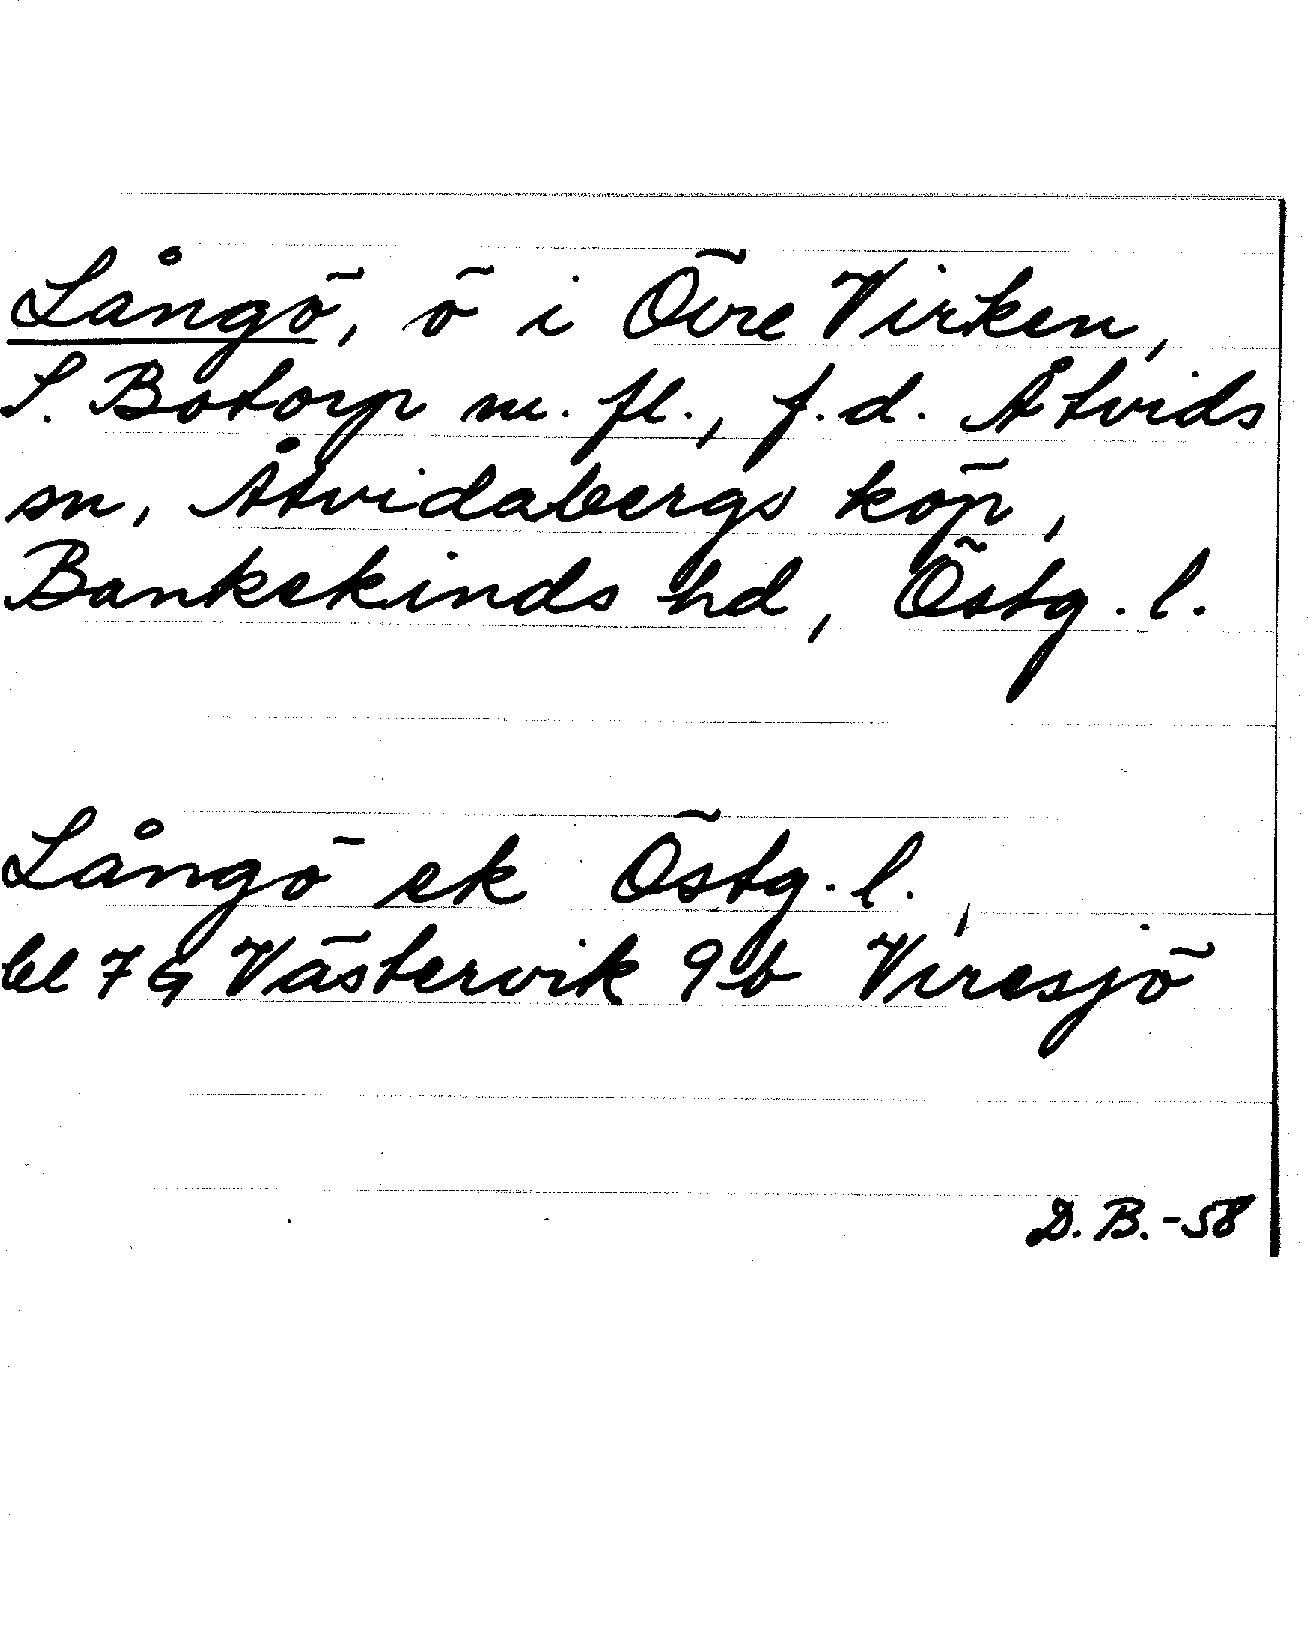 Långö, ö i Övre Virken,
S. Botorp m. fl., f.d. Åtvids
sn, Åtvidabergs köp,
Bankekinds hd, Östg. l.
Långö ek Östg. l.,
bl 7G Västervik 9b Viresjö
D. B. -58